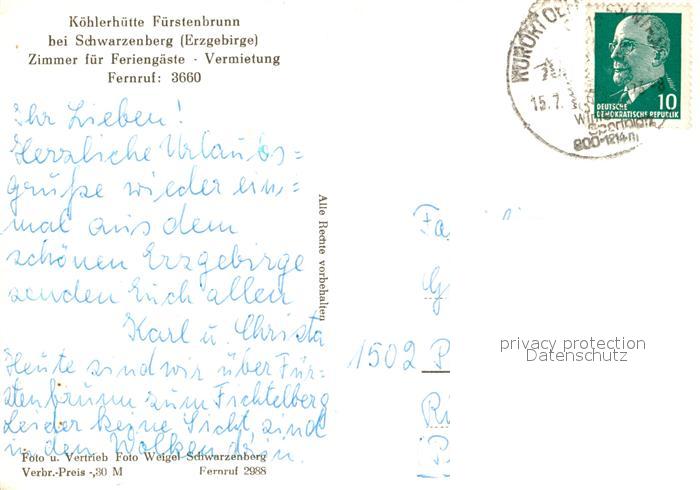 Köhlerhütte Fürstenbrunn
bei Schwarzenberg (Erzgebirge)
Zimmer für Feriengäste - Vermietung
Fernruf: 3660
Ihr Lieben!
Herzliche Urlaubs=
grüße wieder ein=
mal aus dem
schönen Erzgebirge
senden Euch allen
Karl u. Christa
Heute sind wir über Für-
stenbrunn zum Fichtelberg
Leider keine Sicht, sind
in den Wolken drin.
Foto u. Vertrieb Foto Weigel Schwarzenberg
Verbr.-Preis -,30 M Fernruf 2988
Alle Rechte vorbehalten
KURORT
15.7.
800-1214m
10
DEUTSCHE
DEMOKRATISCHE REPUBLIK
Fa
1502 P
privacy protection
Datenschutz